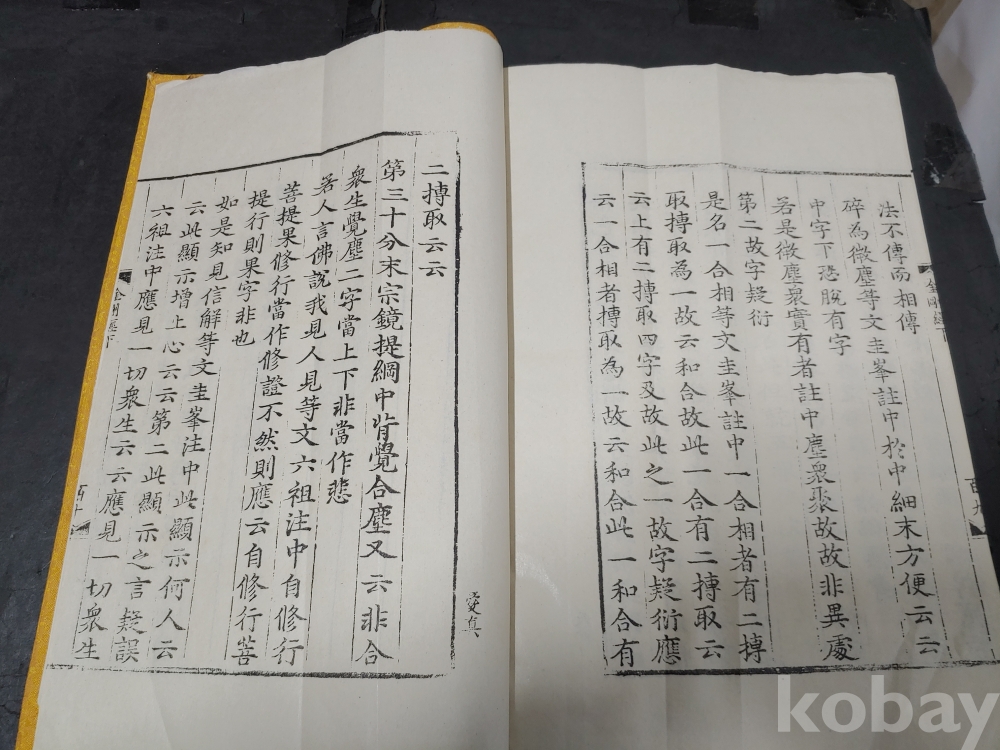 金剛經下
法不傳而相傳
碎為微塵等文圭峯註中於中細末方便云云
中字下恐脫有字
若是微塵衆實有者註中塵衆聚故故非異處
第二故字疑衍
是名一合相等文圭峯註中一合相者有二摶
取摶取為一故云和合故此一合有二摶取云
云上有二摶取四字及故此之一故字疑衍應
云一合相者摶取為一故云和合此一和合有
二摶取云云
第三十分末宗鏡提綱中背覺合塵又云非合
衆生覺塵二字當上下非當作悲
若人言佛說我見人見等文六祖注中自修行
菩提果修行當作修證不然則應云自修行菩
提行則果字非也
如是知見信解等文圭峯注中此顯示何人云
云此顯示增上心云云第二此顯示之言疑誤
六祖注中應見一切衆生云云應見一切衆生
金剛經下
kobay